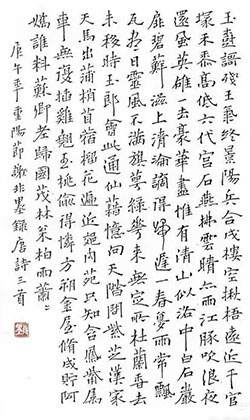 玉樹謌殘王氣終景陽兵合戍樓空楸梧遠近千官
塚禾黍高低六代宮石燕拂雲晴亦雨江豚吹浪夜
還風英雄一去豪華盡惟有青山似洛中白石巖
扉碧蘚滋上清淪謫得歸遲一春夢雨常飄
瓦盡日靈風不滿旗萼綠華來無定所杜蘭香去
未移時玉郎會此通仙籍憶向天階問紫芝漢家
天馬出蒲梢苜蓿榴花遍近郊內苑只知含鳳觜屬
車無復插雞翹玉桃偷得憐方朔金屋脩成貯阿
嬌誰料蘇卿老歸國茂林松柏雨蕭〻
庚午年重陽節非墨錄唐詩三首